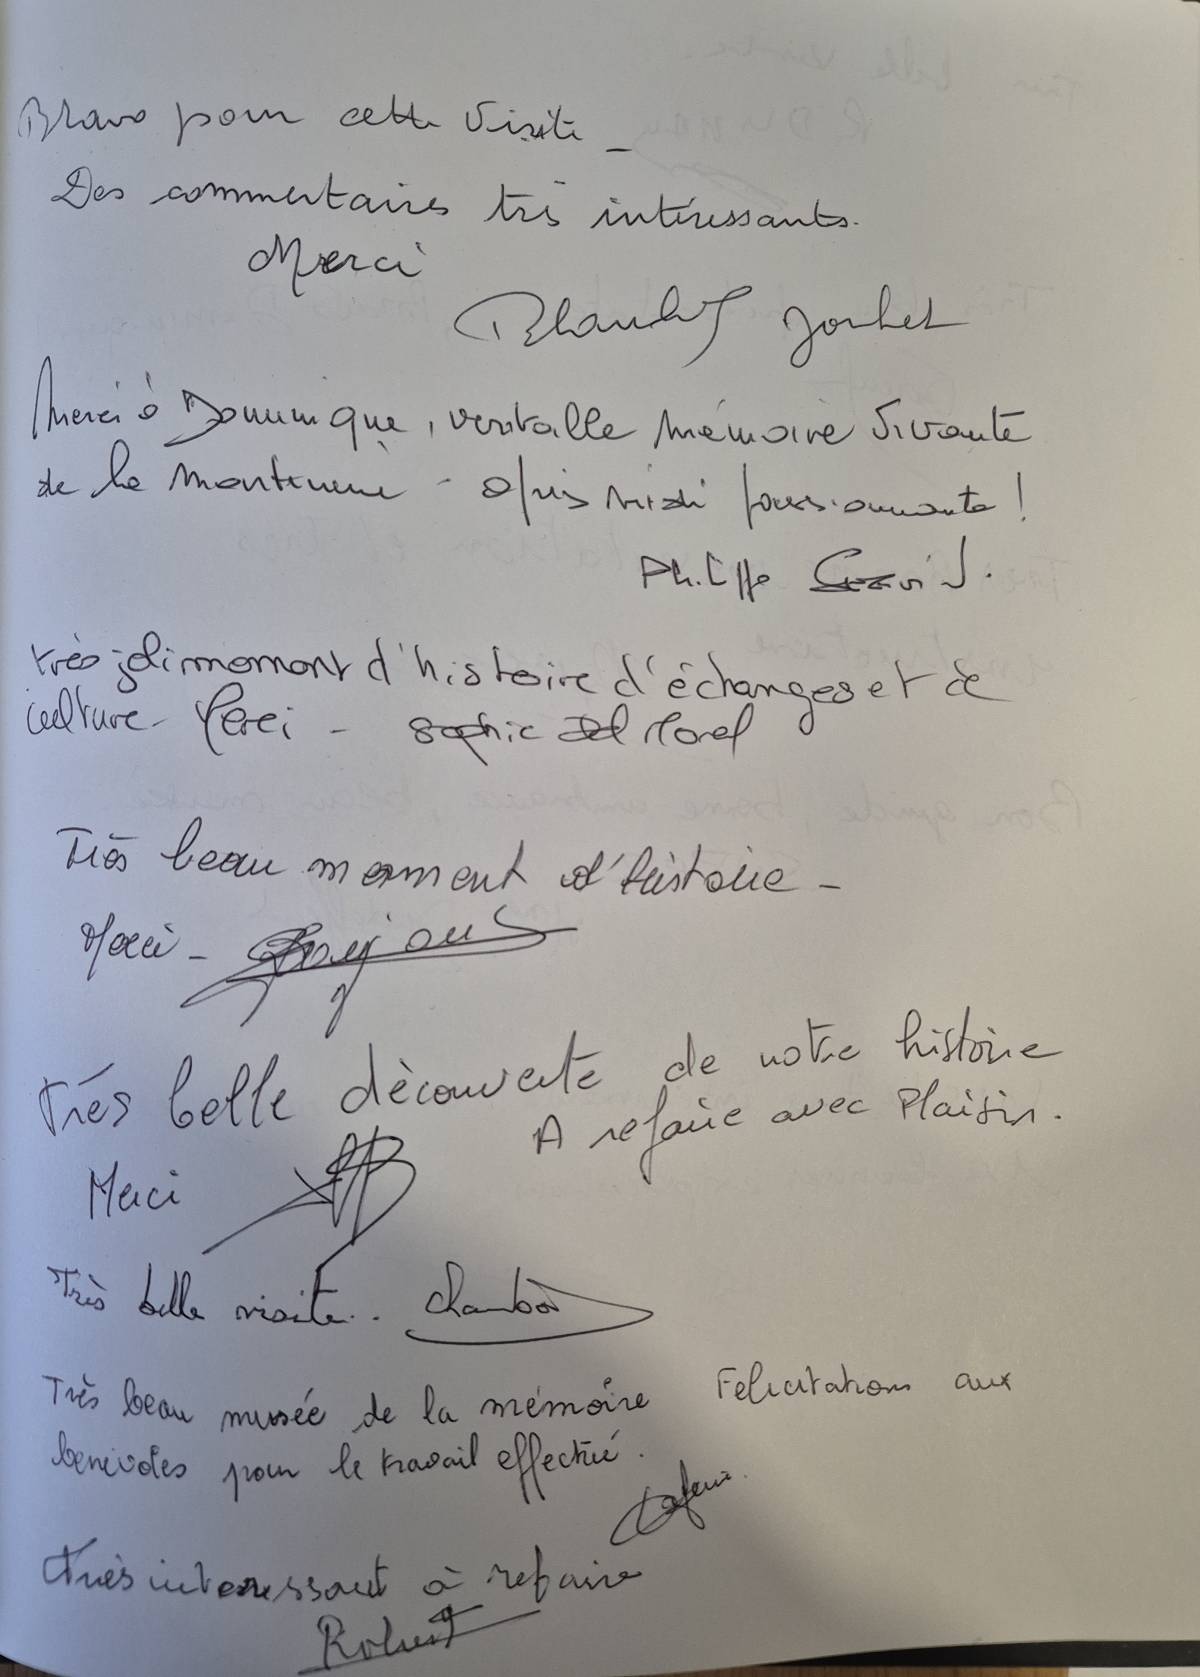 Bravo pour cette visite _
Des commentaires très intéressants.
Merci
Joubet
Merci à Dominique, véritable mémoire vivante
de la - après midi passionnante !
Philippe
très joli moment d'histoire d'échanges et de
culture - Merci - Sophie Morel
Très beau momment d'histoire -
Merci -
Trés belle dècouverte de notre histoire
A refaire avec Plaisir.
Merci
Très belle visite..
Très beau musée de la mémoire Felicitations aux
benevoles pour le travail effectué.
Très interessant à refaire
Robert